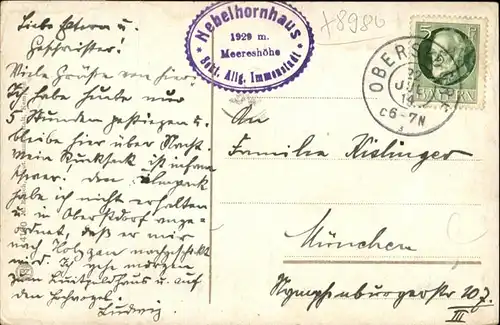 Liebe Eltern u.
Geschwister!
Viele Grüsse von hier!
Ich habe heute nur
5 Stunden gestiegen u.
bleibe hier über Nacht.
Mein Rucksack ist
schwer! Den
habe ich nicht erhalten
u. in Oberstdorf ange-
ordnet, daß er mir
nach nachgeschickt
wird. Ich gehe morgen
zum Luitpoldhaus u. auf
den Hochvogel.
Ludwig
Nebelhornhaus
1929 m.
Meereshöhe
Sekt. Allg. Immenstadt.
78980
OBERSTDORF
JUL
14
6-7N
5 Pf
BAYERN
An
Familie Kislinger
München
Nymphenburgerstr 207.
III